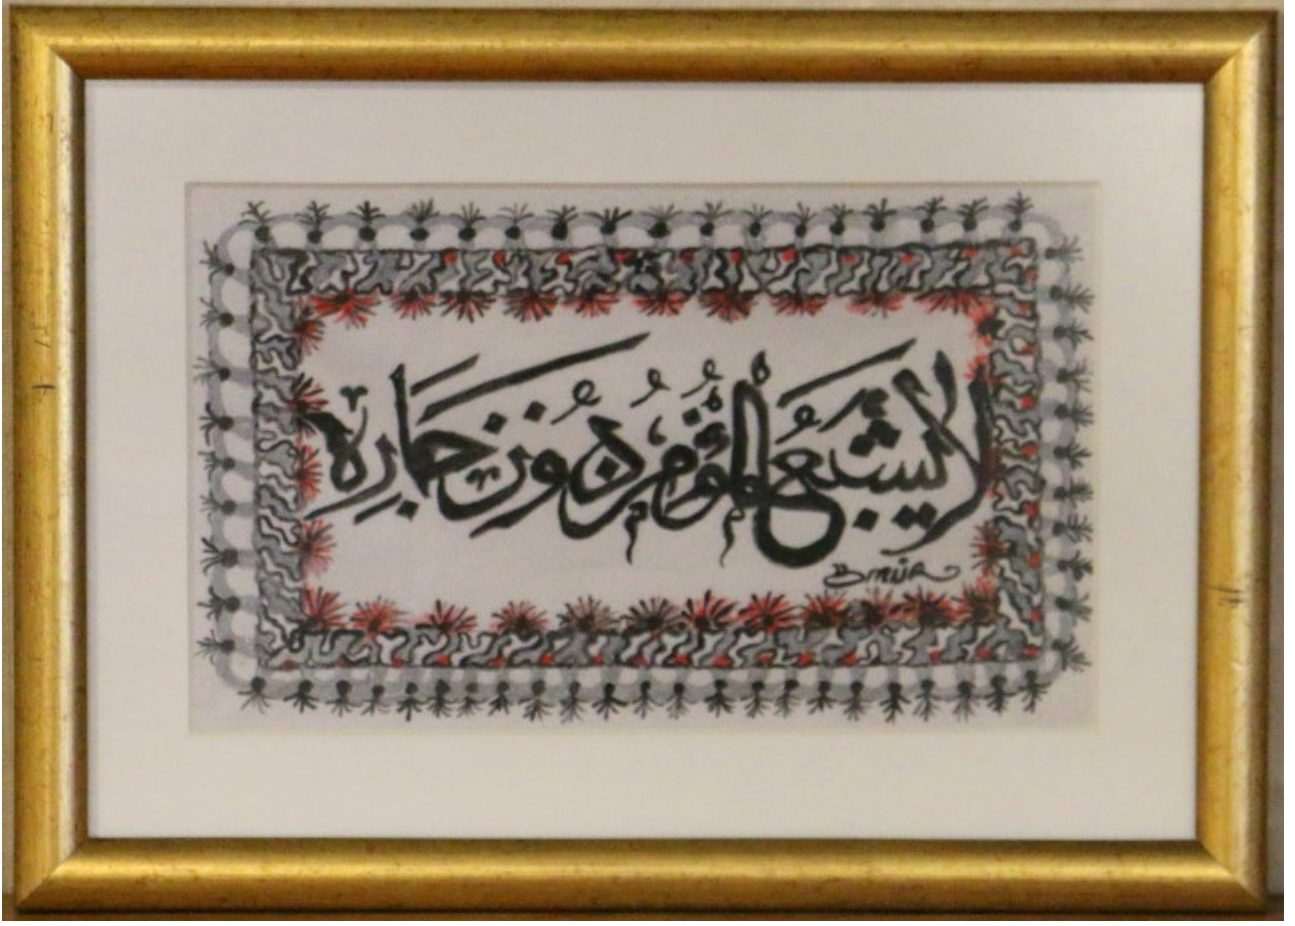 لا يشبع المؤمن دون جاره